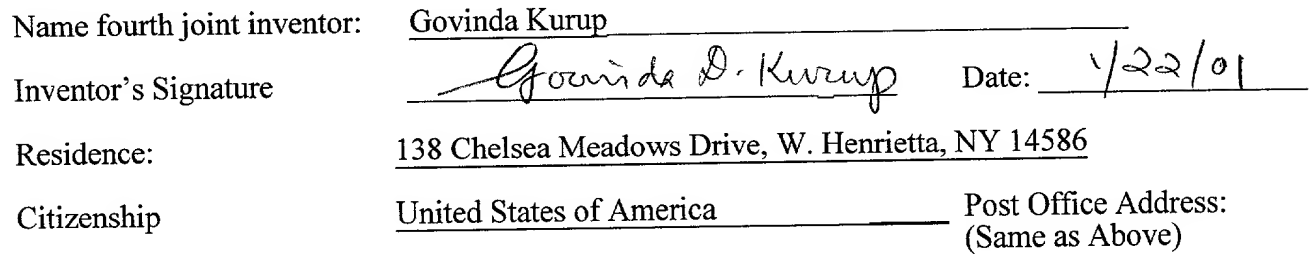 Name fourth joint inventor: Govinda Kurup
Inventor's Signature Govinda D. Kurup Date: 1/22/01
Residence: 138 Chelsea Meadows Drive, W. Henrietta, NY 14586
Citizenship United States of America Post Office Address:
(Same as Above)